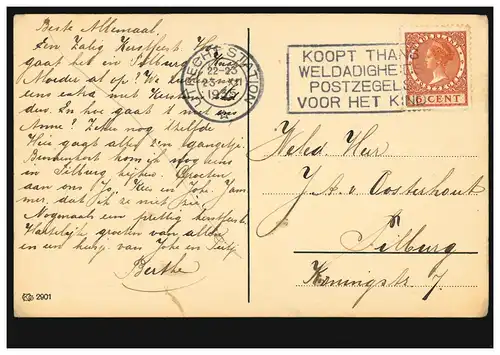 Beste Allemaal.
Een Zalig Kerstfeest. Hoe
gaat het in Tilburg?
Moeder al op?
eens extra met Kerst
den. En hoe gaat 't met
Anne? Zeker nog 't zelfde
Hier gaat alles 't zen gangetje.
Binnenkort kom ik nog eens
in Tilburg kijken. Groeten
aan ons Jo, Kees en Joke. Jam
mer, dat ik ze niet zie.
Nogmaals een prettig kerstfeest.
Hartelijk groeten van allen
en een kusje van Joke en
Berthe
2901
UTRECHT-STATION
22-23
23 XII
192
KOOPT THANS
WELDADIGHE
POSTZEGELS
VOOR HET KIN
CENT
Weled. Heer
J. A. v. Oosterhout
Tilburg
Koningstr. 7.